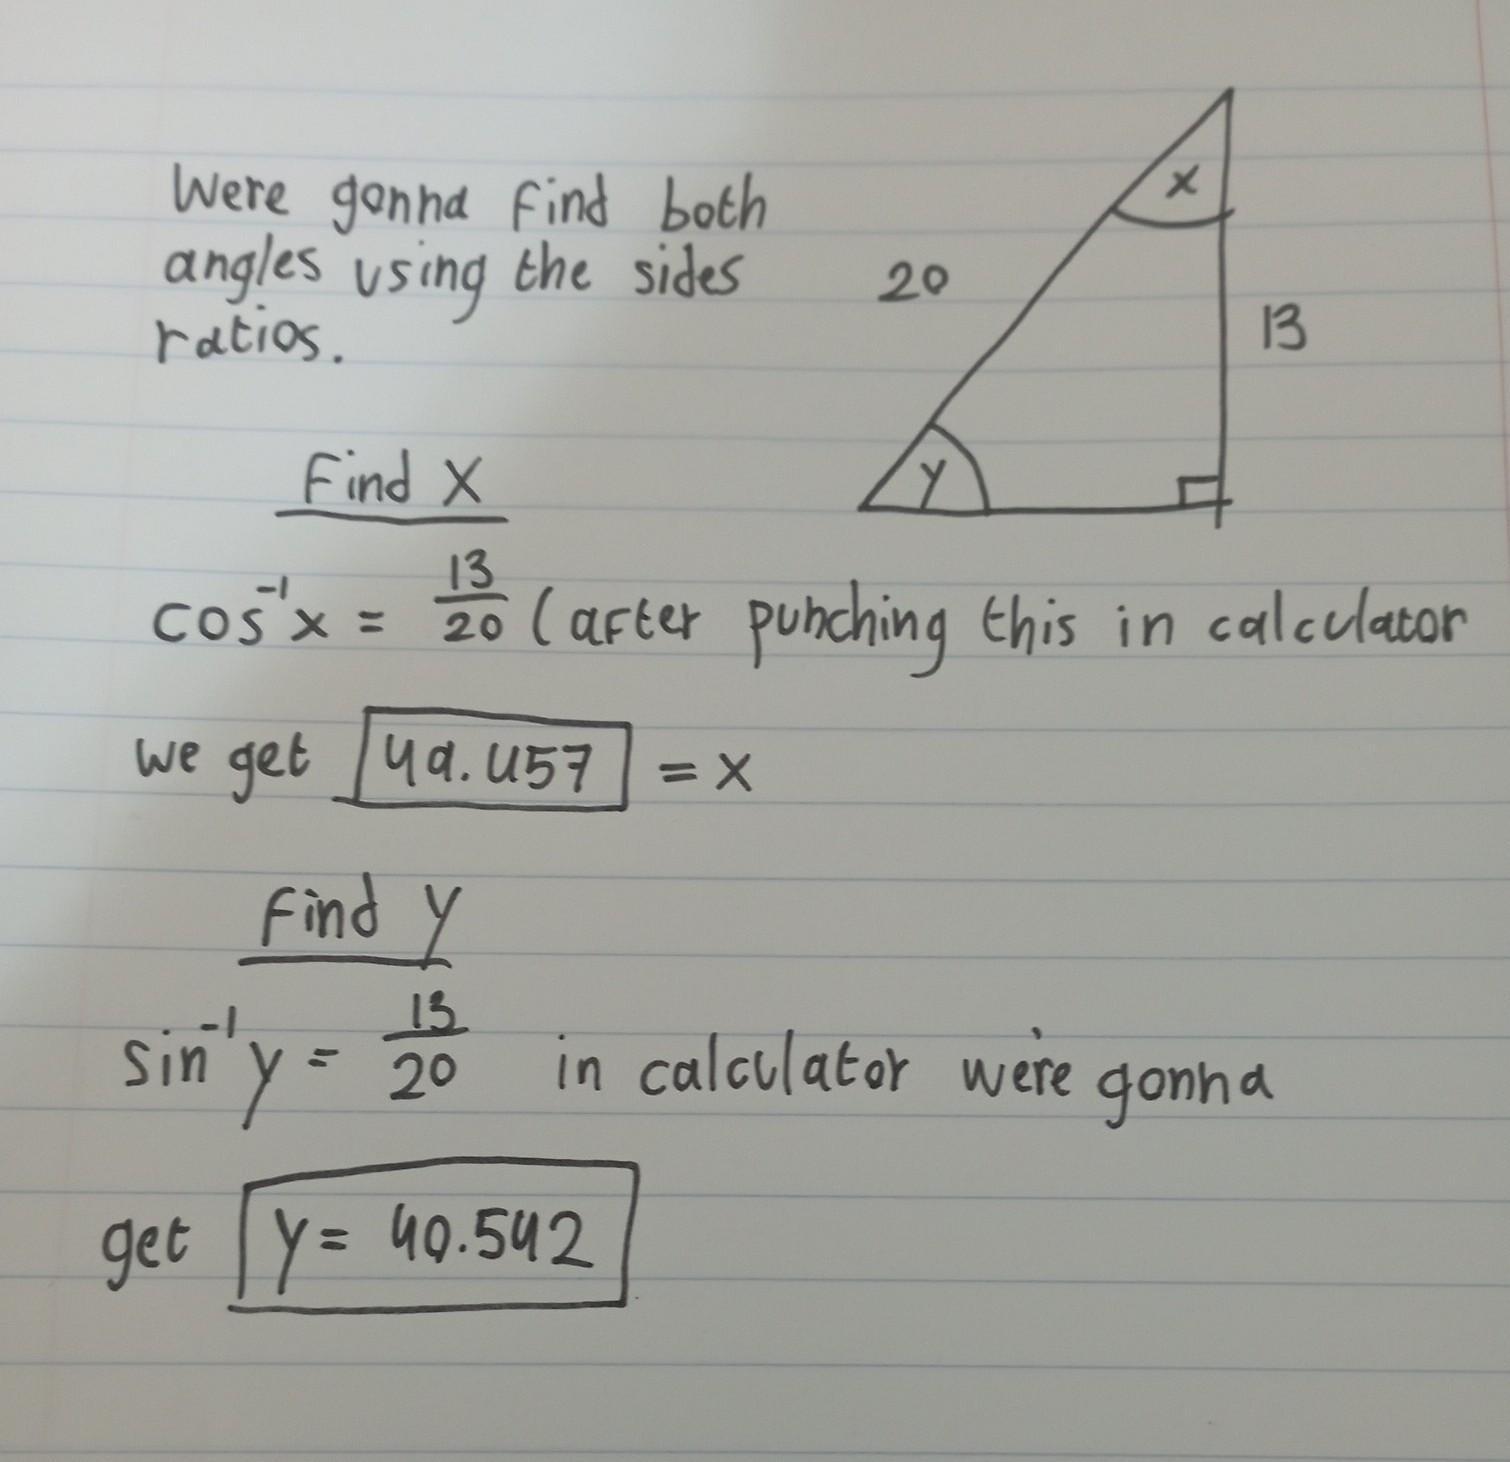 Were gonna find both
angles using the sides
ratios.
x
20
13
y
Find X
cos⁻¹x = 13/20 (after punching this in calculator
we get 49.457 = x
Find y
sin⁻¹y = 13/20 in calculator we're gonna
get y = 40.542